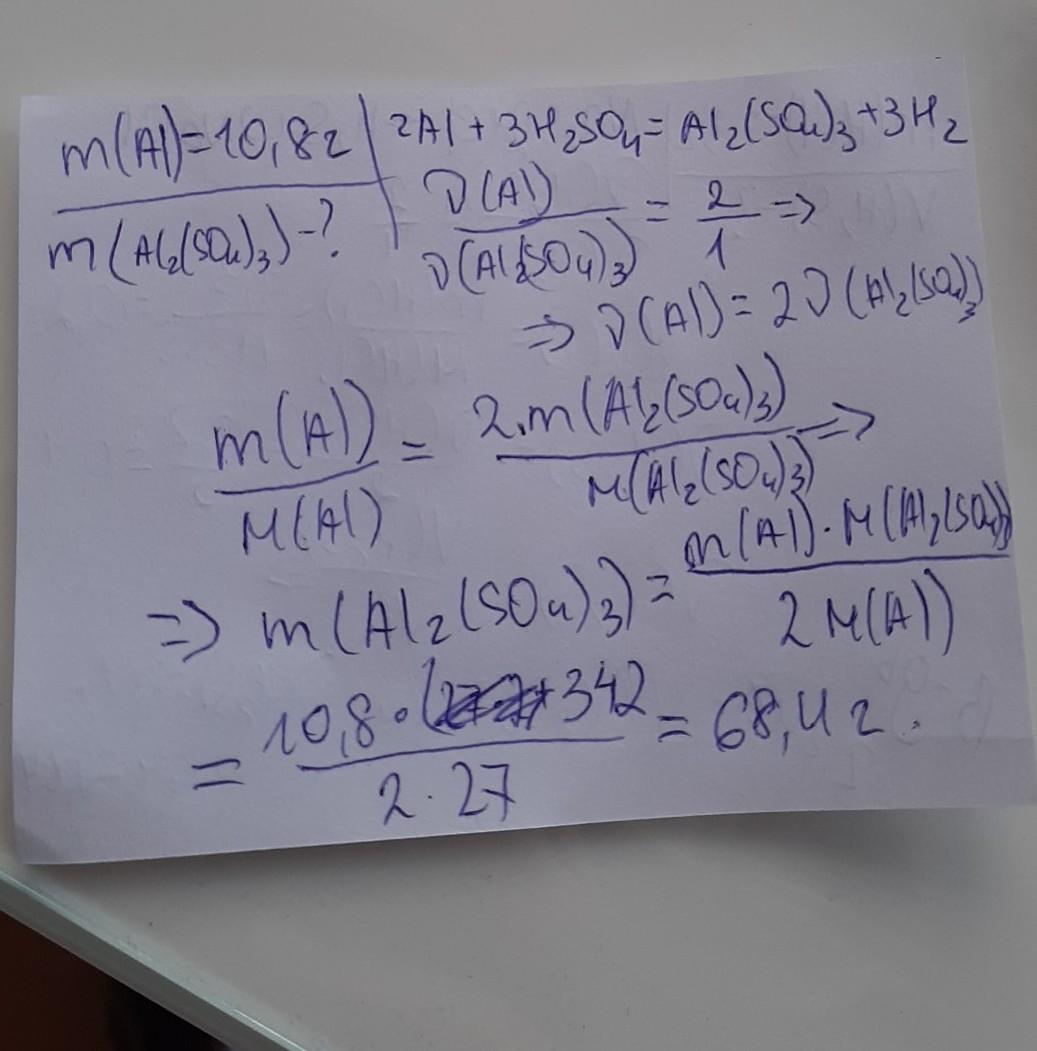 m(Al)=10,8г | 2Al + 3H₂SO₄ = Al₂(SO₄)₃ + 3H₂
m(Al₂(SO₄)₃) - ? | ν(Al) / ν(Al₂(SO₄)₃) = 2/1 =>
=> ν(Al) = 2ν(Al₂(SO₄)₃)
m(Al) / M(Al) = 2·m(Al₂(SO₄)₃) / M(Al₂(SO₄)₃) =>
=> m(Al₂(SO₄)₃) = m(Al)·M(Al₂(SO₄)₃) / 2M(Al)
= 10,8·(342 / 2·27 = 68,4г.